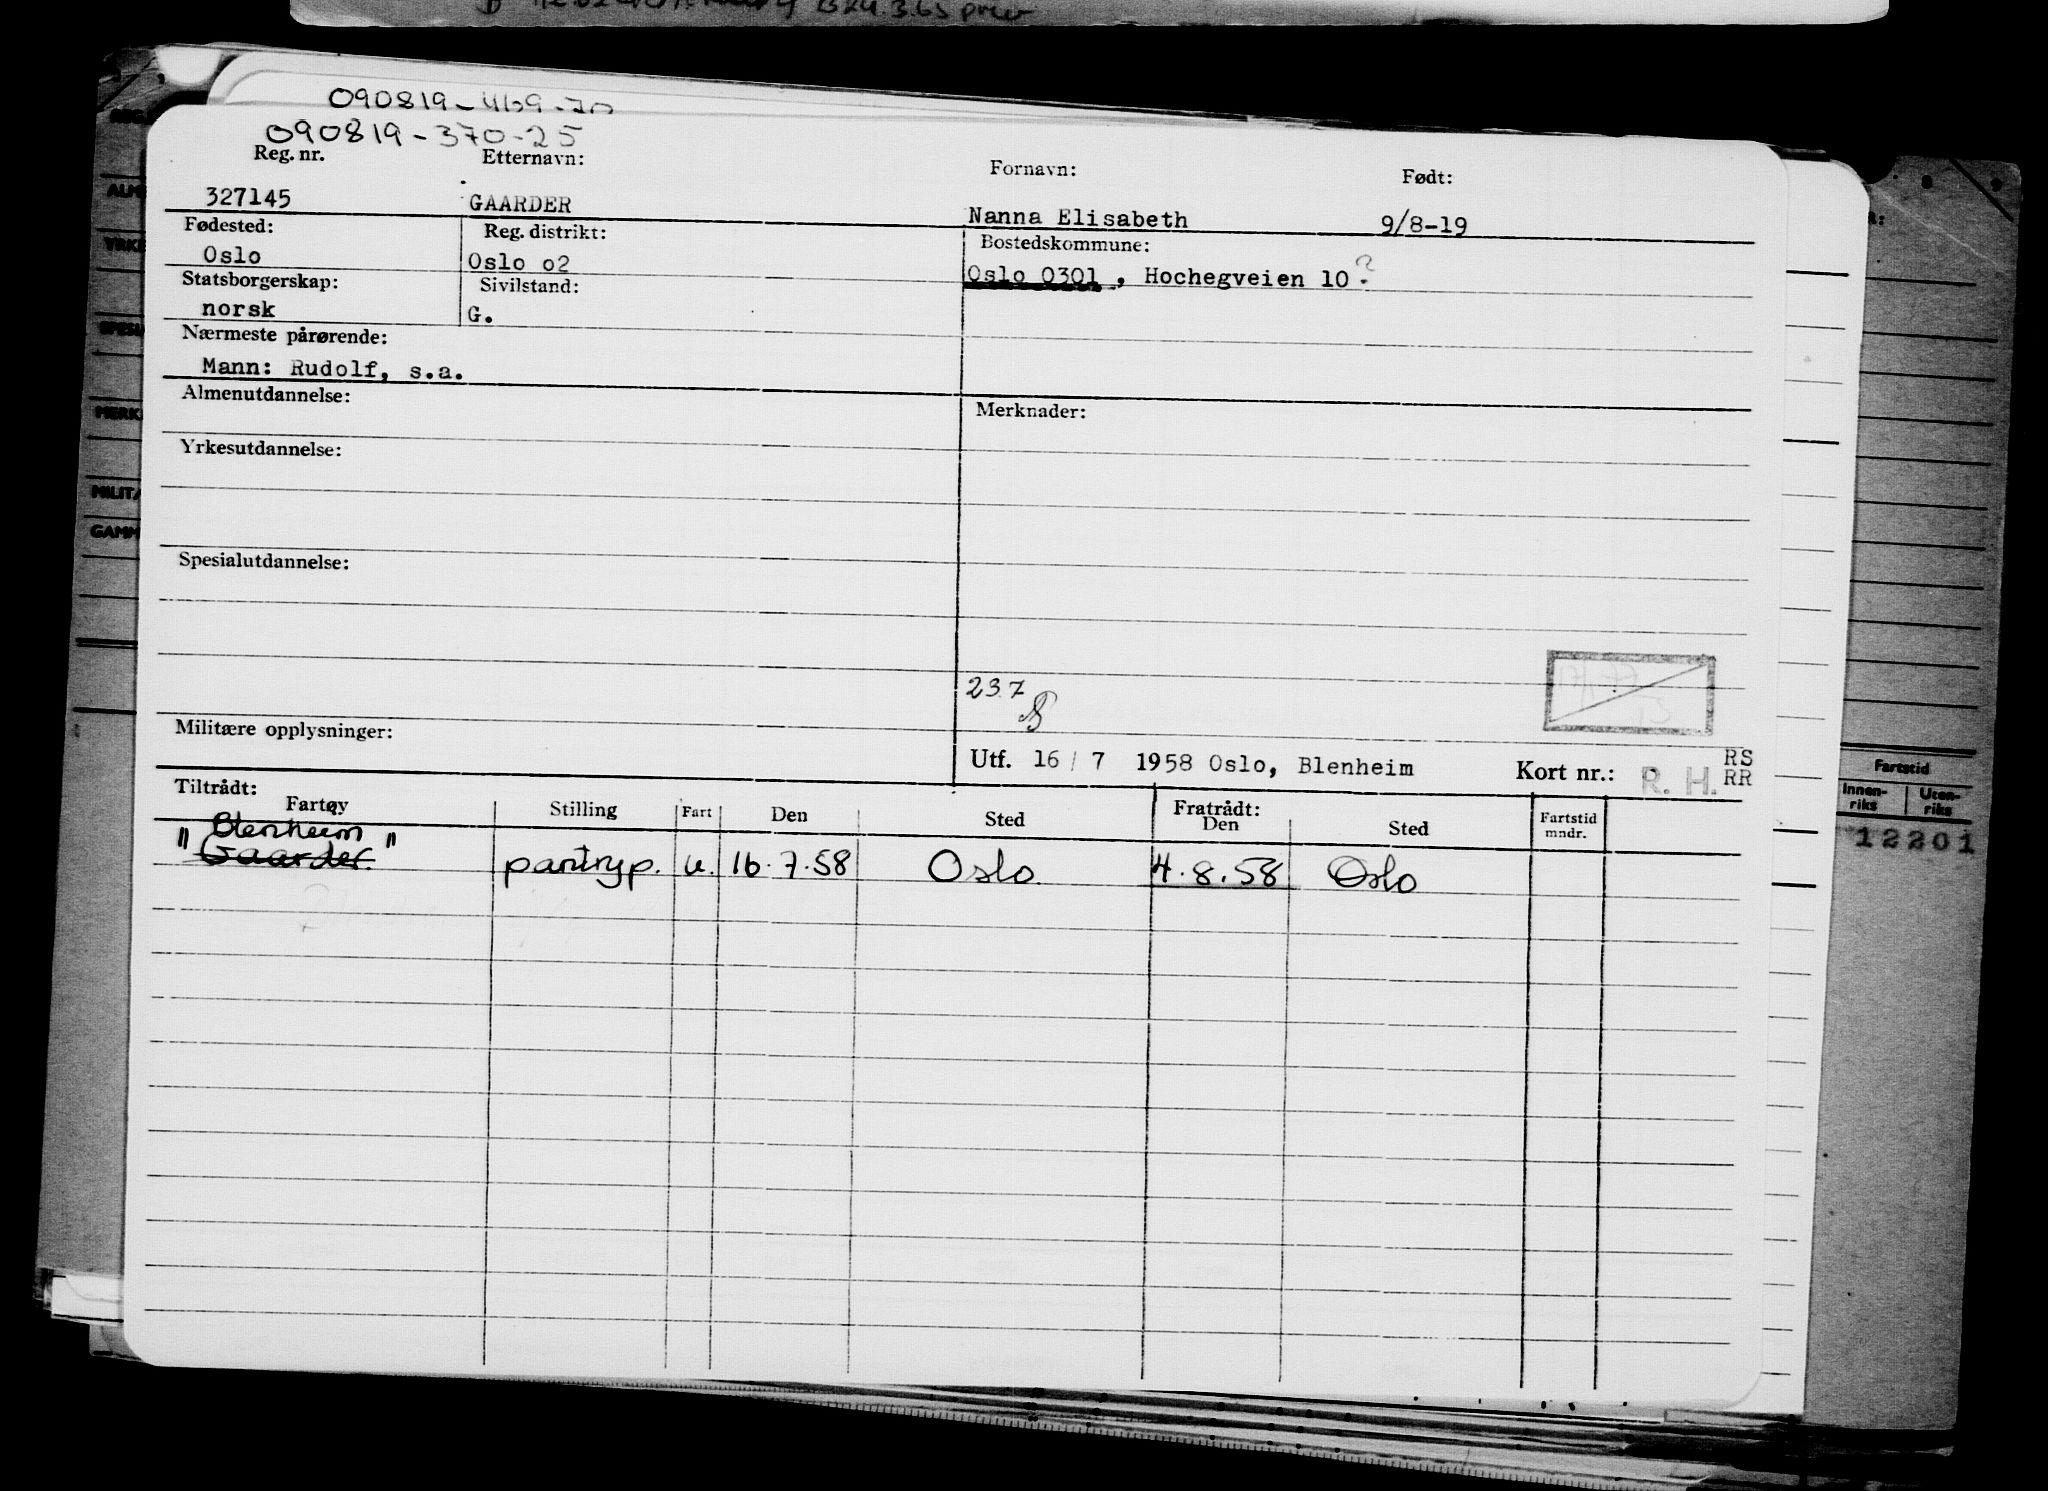 090819-469-70
090819-370-25
Reg. nr. Etternavn: Fornavn: Født:
327145 GAARDER Nanna Elisabeth 9/8-19
Fødested: Reg. distrikt: Bostedskommune:
Oslo Oslo o2 Oslo 0301, Hochegveien 10?
Statsborgerskap: Sivilstand:
norsk G.
Nærmeste pårørende:
Mann: Rudolf, s.a.
Almenutdannelse: Merknader:
Yrkesutdannelse:
Spesialutdannelse:
237
Militære opplysninger:
Utf. 16/7 1958 Oslo, Blenheim Kort nr.: R. H. RS
RR
Tiltrådt: Fratrådt:
Fartøy Stilling Fart Den Sted Den Sted Fartstid
mndr.
"Blenheim"
Gaarder pantryp. u. 16.7.58 Oslo 4.8.58 Oslo
Fartstid
Innen-
riks
Uten-
riks
12201